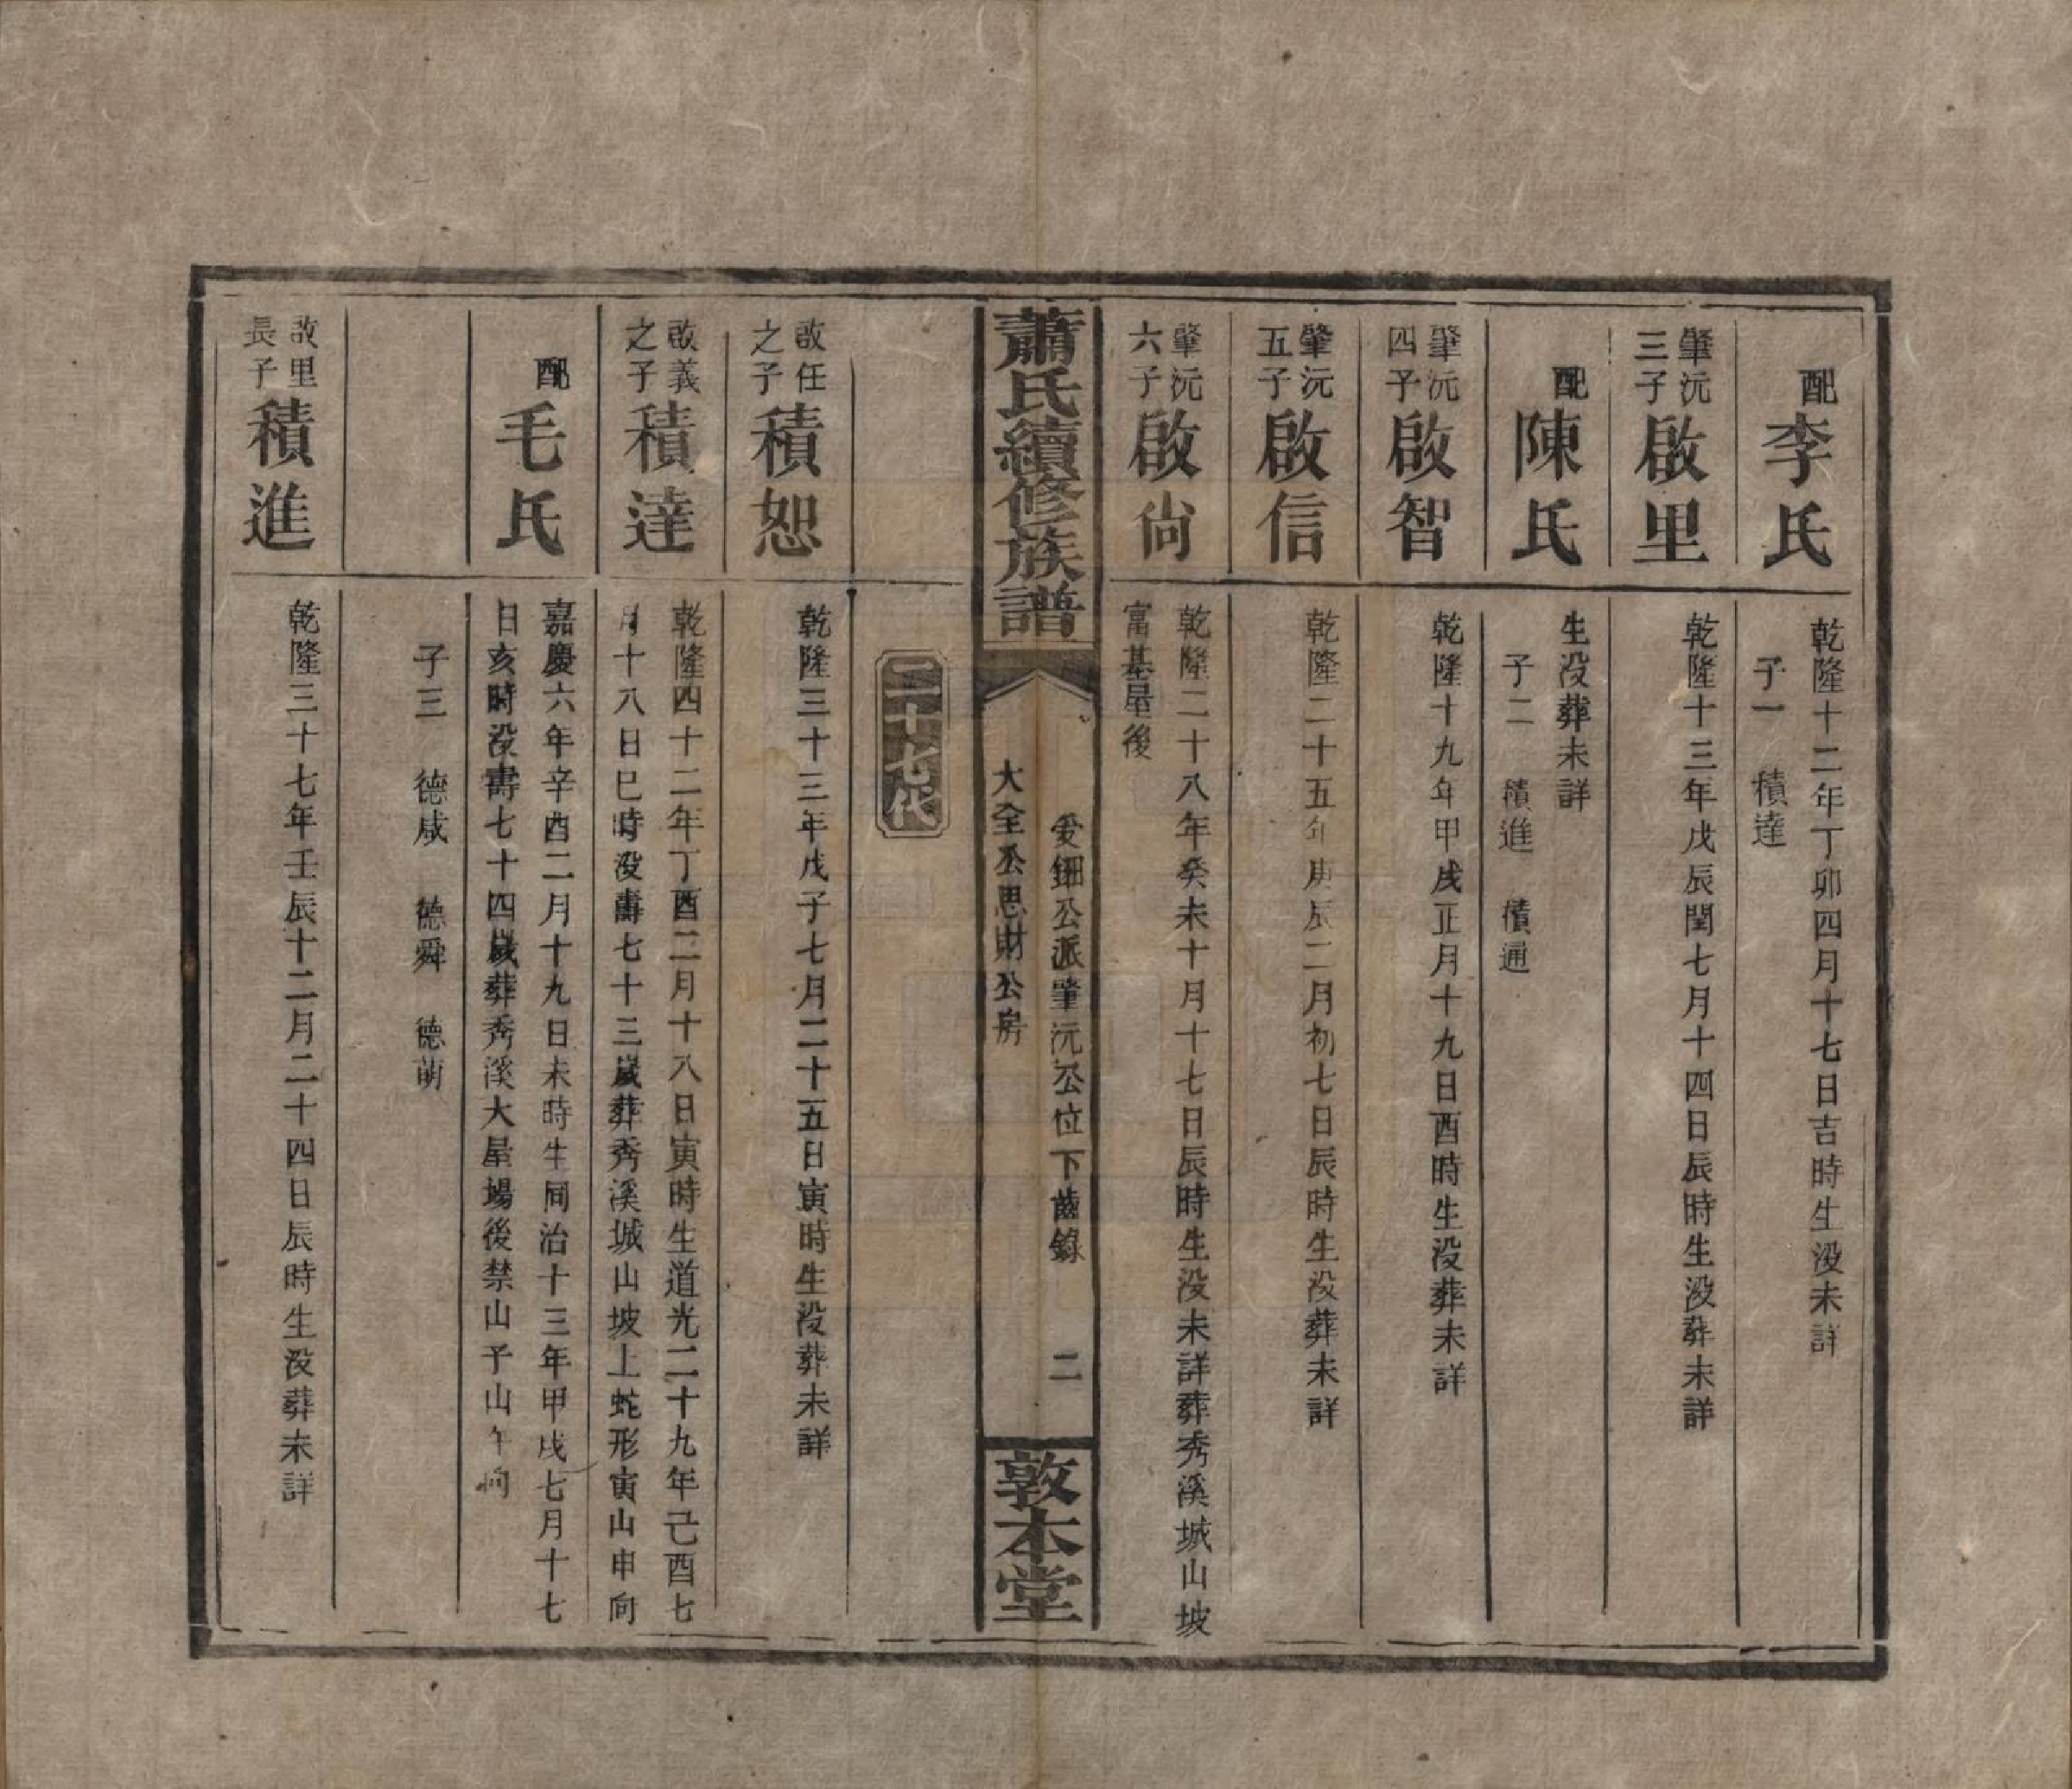 配李氏
乾隆十二年丁卯四月十七日吉時生没未詳
子一　積達
肇沅三子啟里
乾隆十三年戊辰閏七月十四日辰時生没葬未詳
配陳氏
生没葬未詳
子二　積進　積通
肇沅四子啟智
乾隆十九年甲戌正月十九日酉時生没葬未詳
肇沅五子啟信
乾隆二十五年庚辰二月初七日辰時生没葬未詳
肇沅六子啟尙
乾隆二十八年癸未十月十七日辰時生没未詳葬秀溪城山坡
富基屋後
蕭氏續修族譜
愛鈿公派肇沅公位下齒錄　二
大全公思財公房
敦本堂
二十七代
啟任之子積恕
乾隆三十三年戊子七月二十五日寅時生没葬未詳
啟義之子積達
乾隆四十二年丁酉二月十八日寅時生道光二十九年己酉七
月十八日巳時没壽七十三歲葬秀溪城山坡上蛇形寅山申向
配毛氏
嘉慶六年辛酉二月十九日未時生同治十三年甲戌七月十七
日亥時没壽七十四歲葬秀溪大屋場後禁山子山午向
子三　德咸　德舜　德萌
啟里長子積進
乾隆三十七年壬辰十二月二十四日辰時生没葬未詳